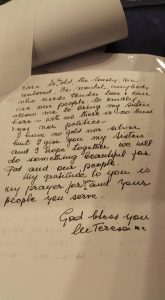 care to, old the lonely, the
unloved the mental, anybody
who needs tender love & care
are our people so kindly
allow me to bring my sisters
here – with us there is no busi
ness nor politics.
I have no gold nor silver
but I give you my sisters
and I hope together, we will
do something beautiful for
God and our people.
My gratitude to you is
my prayer for you and your
people you serve.
God bless you
lee Teresa mc